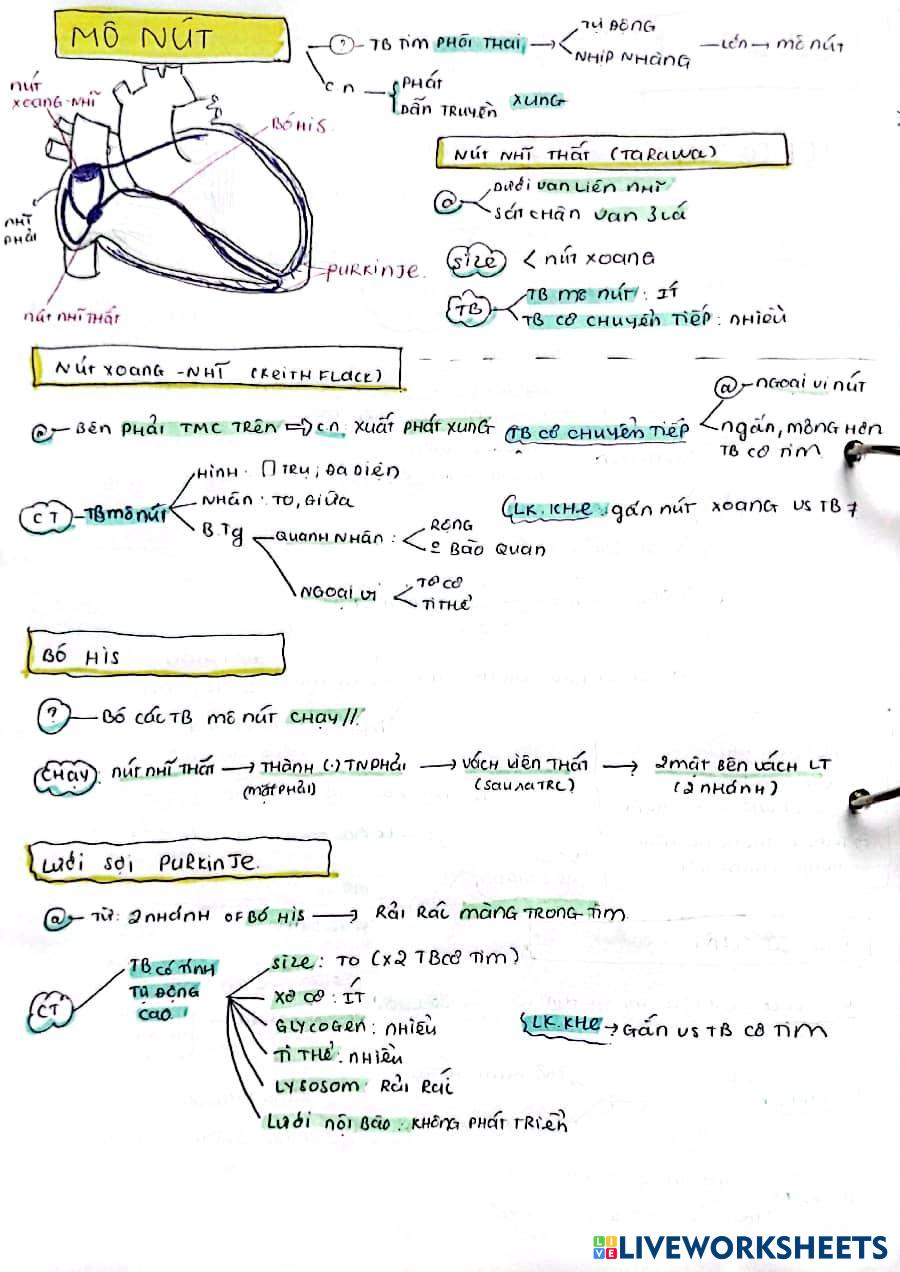 MÔ NÚT
? - TB TIM PHÔI THAI → TỰ ĐỘNG
NHỊP NHÀNG → mô nút
CN - PHÁT
DẪN TRUYỀN XUNG
NÚT XOANG-NHĨ
BÓ HIS
NHĨ PHẢI
PURKINJE.
NÚT NHĨ THẤT
NÚT NHĨ THẤT (TARAWA)
@ DƯỚI VAN LIÊN NHĨ
SÁT CHÂN VAN 3 LÁ
SIZE < NÚT XOANG
TB TB MÔ NÚT: ÍT
TB CƠ CHUYỂN TIẾP: NHIỀU
NÚT XOANG-NHĨ (KEITH FLACK)
@ - BÊN PHẢI TMC TRÊN ⇒ CN: XUẤT PHÁT XUNG
CT - TB MÔ NÚT
HÌNH: TRỤ; ĐA DIỆN
NHÂN: TO, GIỮA
B.Tg
QUANH NHÂN: RỘNG
BÀO QUAN
NGOẠI VI TƠ CƠ
TI THỂ
TB CƠ CHUYỂN TIẾP
@ - NGOẠI VI NÚT
NGẮN, MỎNG HƠN
TB CƠ TIM
LK.KHE: gắn nút xoang vs TB ≠
BÓ HIS
? - BÓ CÁC TB MÔ NÚT CHẠY //
CHẠY: NÚT NHĨ THẤT → THÀNH (.) TN PHẢI → VÁCH LIÊN THẤT → 2 MẶT BÊN VÁCH LT
(MẶT PHẢI) (SAU LÁ TRC) (2 NHÁNH)
LƯỚI SỢI PURKINJE.
@ - TỪ: 2 NHÁNH OF BÓ HIS → RẢI RÁC MÀNG TRONG TIM
CT TB CÓ TÍNH
TỰ ĐỘNG
CAO
SIZE: TO (x2 TB CƠ TIM)
XƠ CƠ: ÍT
GLYCOGEN: NHIỀU
TI THỂ: NHIỀU
LYSOSOM: RẢI RÁC
LƯỚI NỘI BÀO: KHÔNG PHÁT TRIỂN
LK.KHE → GẮN VS TB CƠ TIM
LIVE LIVEWORKSHEETS